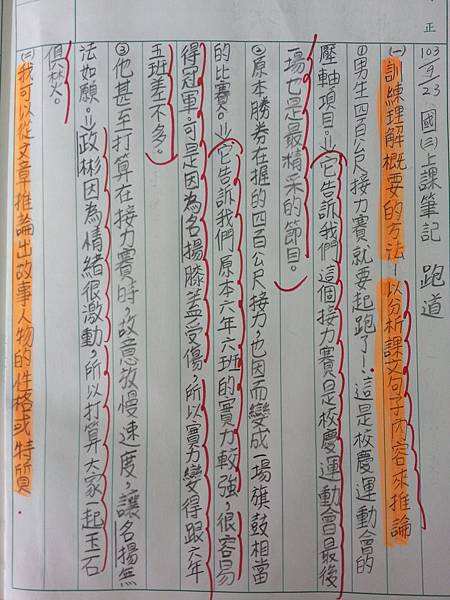 正
103 9/23 國(三)上課筆記 跑道
(一)訓練理解概要的方法—以分析課文句子內容來推論
①男生四百公尺接力賽就要起跑了！這是校慶運動會的
壓軸項目。⇒它告訴我們這個接力賽是校慶運動會最後一
場也是最精采的節目。
②原本勝券在握的四百公尺接力，也因而變成一場旗鼓相當
的比賽。⇒它告訴我們原本六年六班的實力較強，很容易
得冠軍，可是因為名揚膝蓋受傷，所以實力變得跟六年
五班差不多。
③他甚至打算在接力賽時，故意放慢速度，讓名揚無
法如願。⇒政彬因為情緒很激動，所以打算大家一起玉石
俱焚。
(二)我可以從文章推論出故事人物的性格或特質.